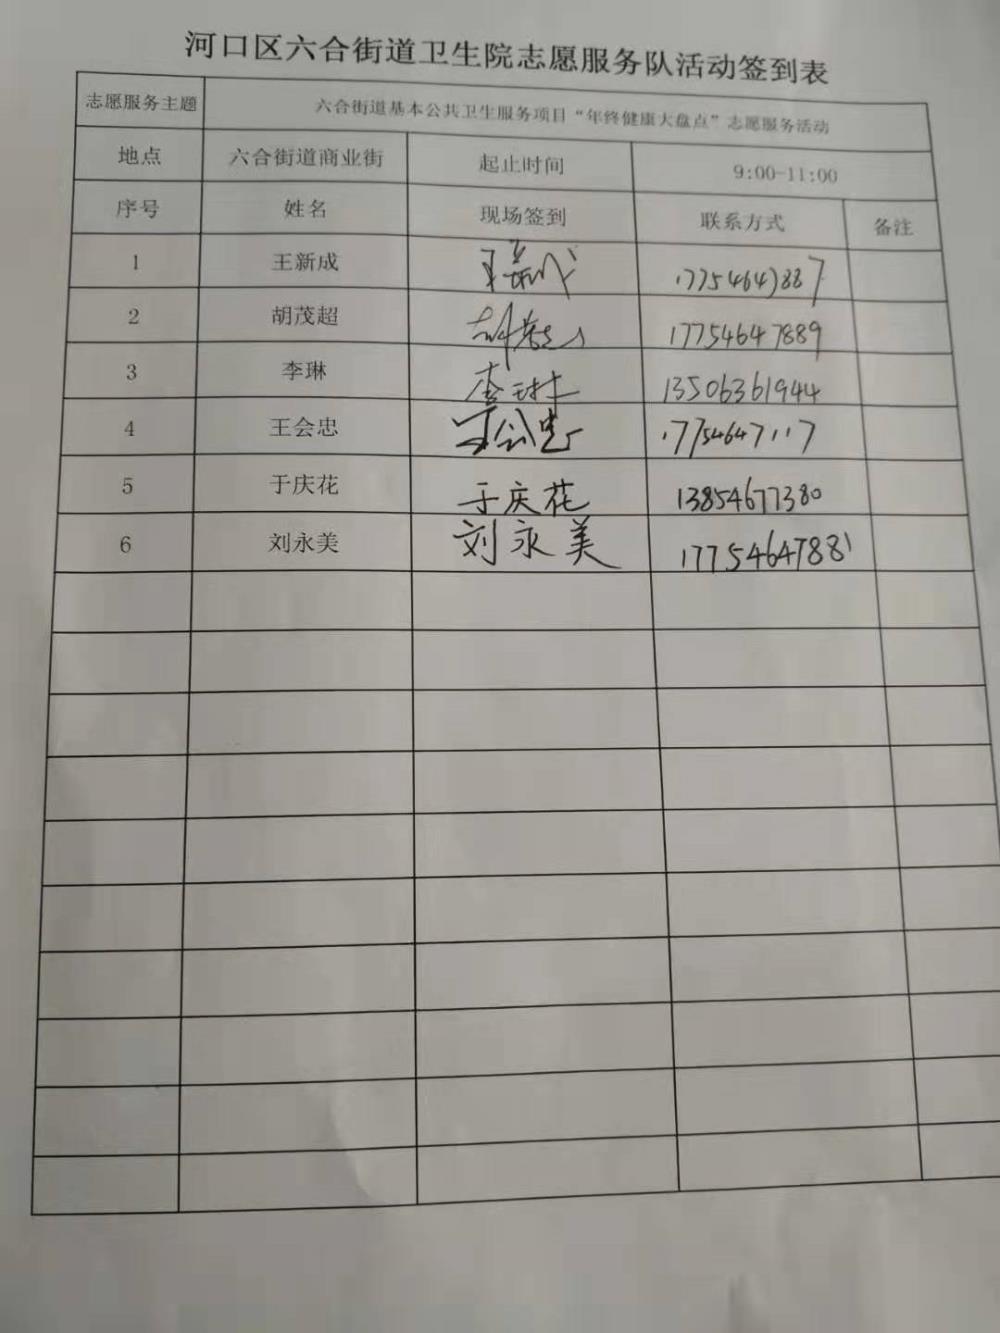 河口区六合街道卫生院志愿服务队活动签到表
志愿服务主题 六合街道基本公共卫生服务项目“年终健康大盘点”志愿服务活动
地点 六合街道商业街 起止时间 9:00-11:00
序号 姓名 现场签到 联系方式 备注
1 王新成 王新成
2 胡茂超 胡茂超 17754647889
3 李琳 李琳 13506361944
4 王会忠 王会忠 17754647117
5 于庆花 于庆花 13854677380
6 刘永美 刘永美 17754647881